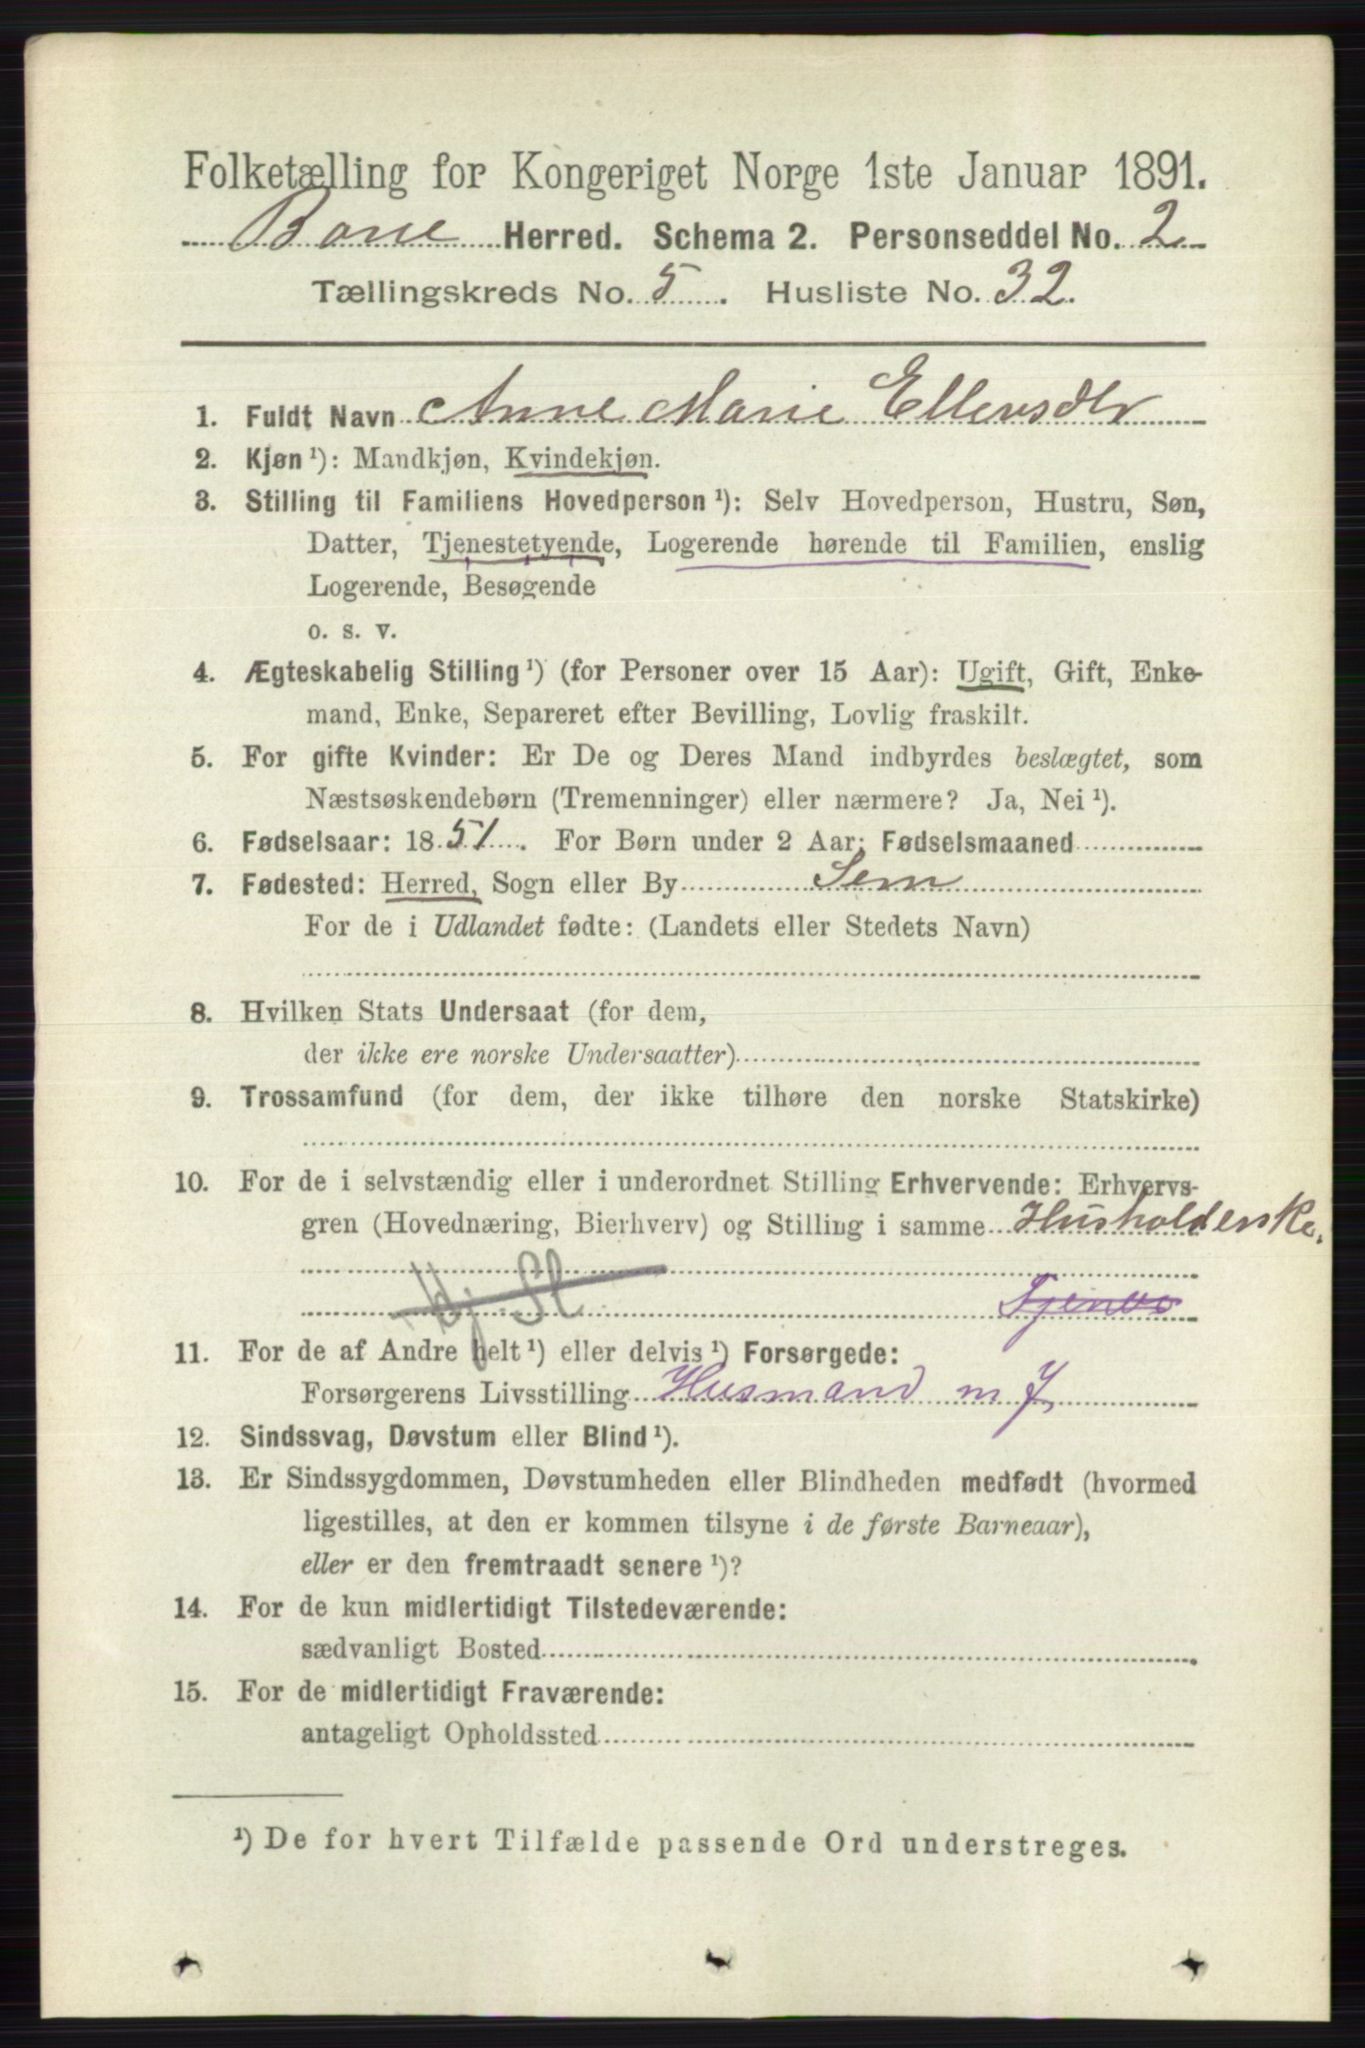 Folketælling for Kongeriget Norge 1ste Januar 1891.
Borre Herred. Schema 2. Personseddel No. 2
Tællingskreds No. 5. Husliste No. 32.
1. Fuldt Navn Anne Marie Ellevsdtr
2. Kjøn ¹): Mandkjøn, Kvindekjøn.
3. Stilling til Familiens Hovedperson ¹): Selv Hovedperson, Hustru, Søn,
Datter, Tjenestetyende, Logerende hørende til Familien, enslig
Logerende, Besøgende
o. s. v.
4. Ægteskabelig Stilling ¹) (for Personer over 15 Aar): Ugift, Gift, Enke-
mand, Enke, Separeret efter Bevilling, Lovlig fraskilt.
5. For gifte Kvinder: Er De og Deres Mand indbyrdes beslægtet, som
Næstsøskendebørn (Tremenninger) eller nærmere? Ja, Nei ¹).
6. Fødselsaar: 1851. For Børn under 2 Aar: Fødselsmaaned
7. Fødested: Herred, Sogn eller By Sem
For de i Udlandet fødte: (Landets eller Stedets Navn)
8. Hvilken Stats Undersaat (for dem,
der ikke ere norske Undersaatter)
9. Trossamfund (for dem, der ikke tilhøre den norske Statskirke)
10. For de i selvstændig eller i underordnet Stilling Erhvervende: Erhvervs-
gren (Hovednæring, Bierhverv) og Stilling i samme Husholderske.
11. For de af Andre helt ¹) eller delvis ¹) Forsørgede:
Forsørgerens Livsstilling Husmand m J
12. Sindssvag, Døvstum eller Blind ¹).
13. Er Sindssygdommen, Døvstumheden eller Blindheden medfødt (hvormed
ligestilles, at den er kommen tilsyne i de første Barneaar),
eller er den fremtraadt senere ¹)?
14. For de kun midlertidigt Tilstedeværende:
sædvanligt Bosted
15. For de midlertidigt Fraværende:
antageligt Opholdssted
¹) De for hvert Tilfælde passende Ord understreges.